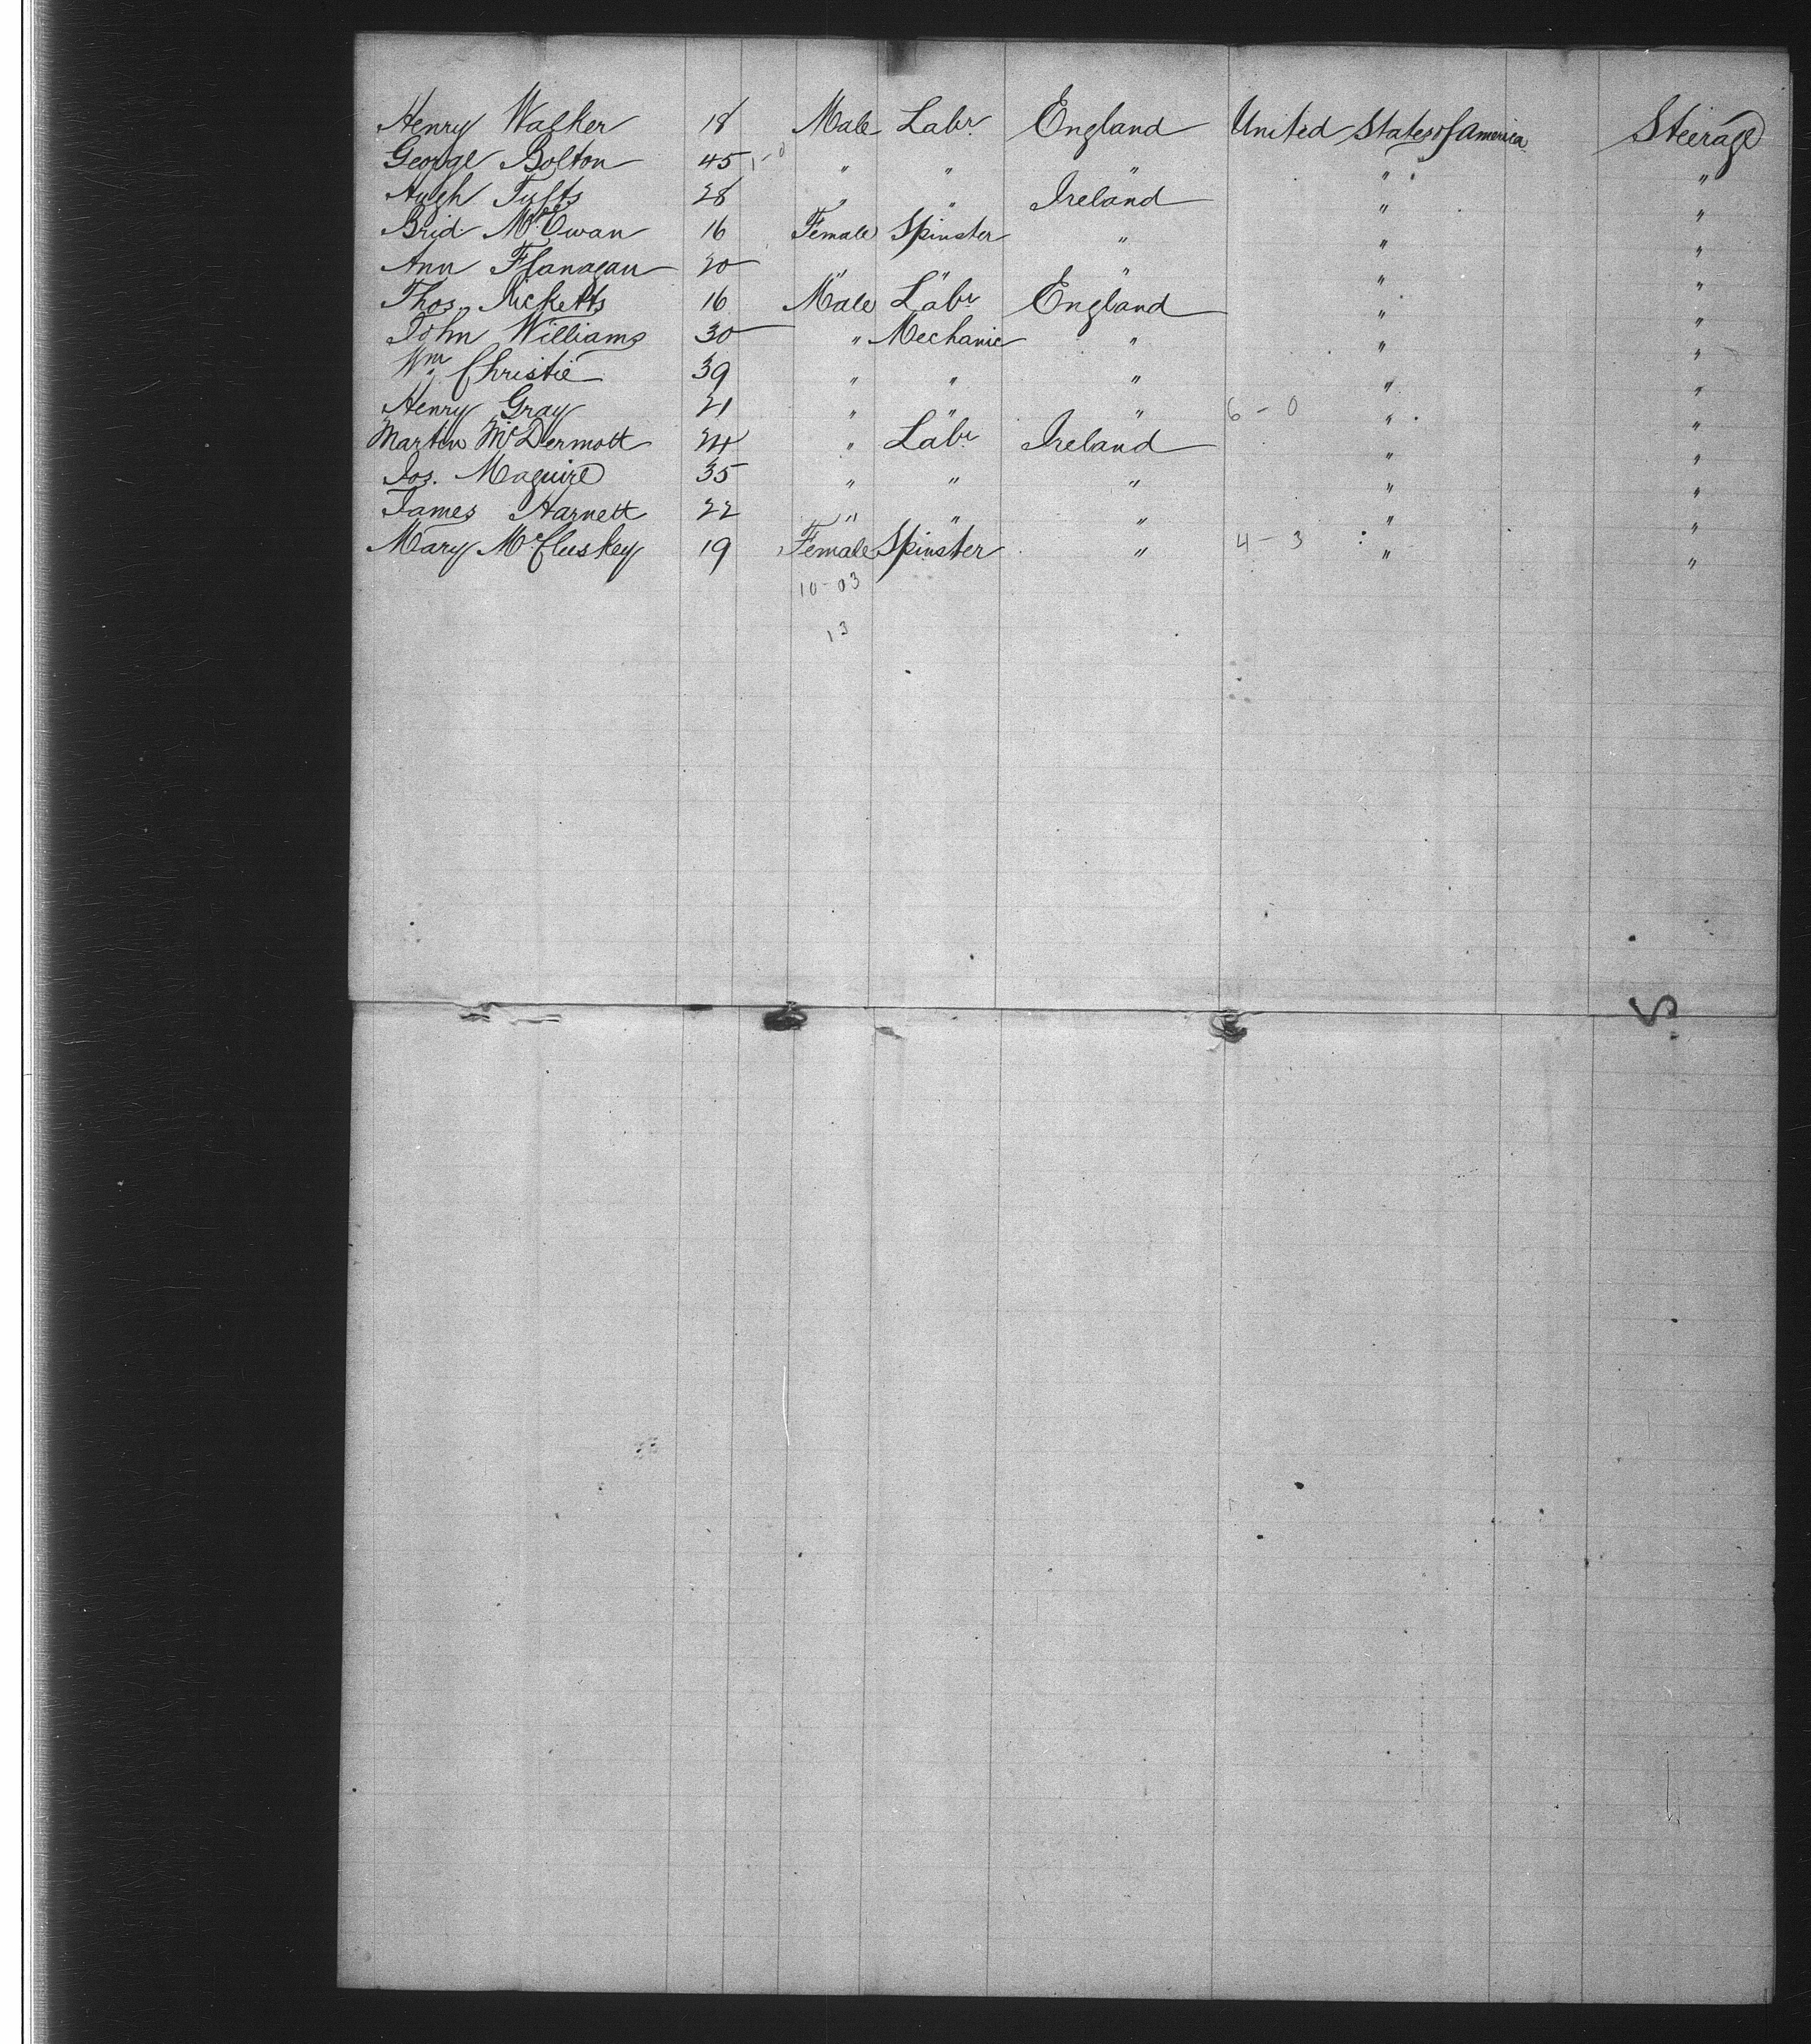 Henry Walker 18 Male Labr. England United States of America Steerage
George Bolton 45 1-0 " " " " "
Hugh Tufts 28 " " Ireland " "
Brid. McOwan 16 Female Spinster " " "
Ann Flanagan 20 " " " " "
Thos. Ricketts 16 Male Labr England " "
John Williams 30 " Mechanic " " "
Wm Christie 39 " " " " "
Henry Gray 21 " " " 6-0 " "
Martin McDermott 24 " Labr Ireland " "
Jos. Maguire 35 " " " " "
James Harnett 22 " " " " "
Mary McCluskey 19 Female Spinster " 4-3 " "
10-03
13